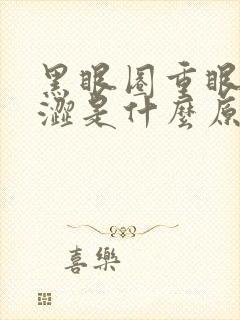 黑眼圈重眼
澀是什麼原
喜樂